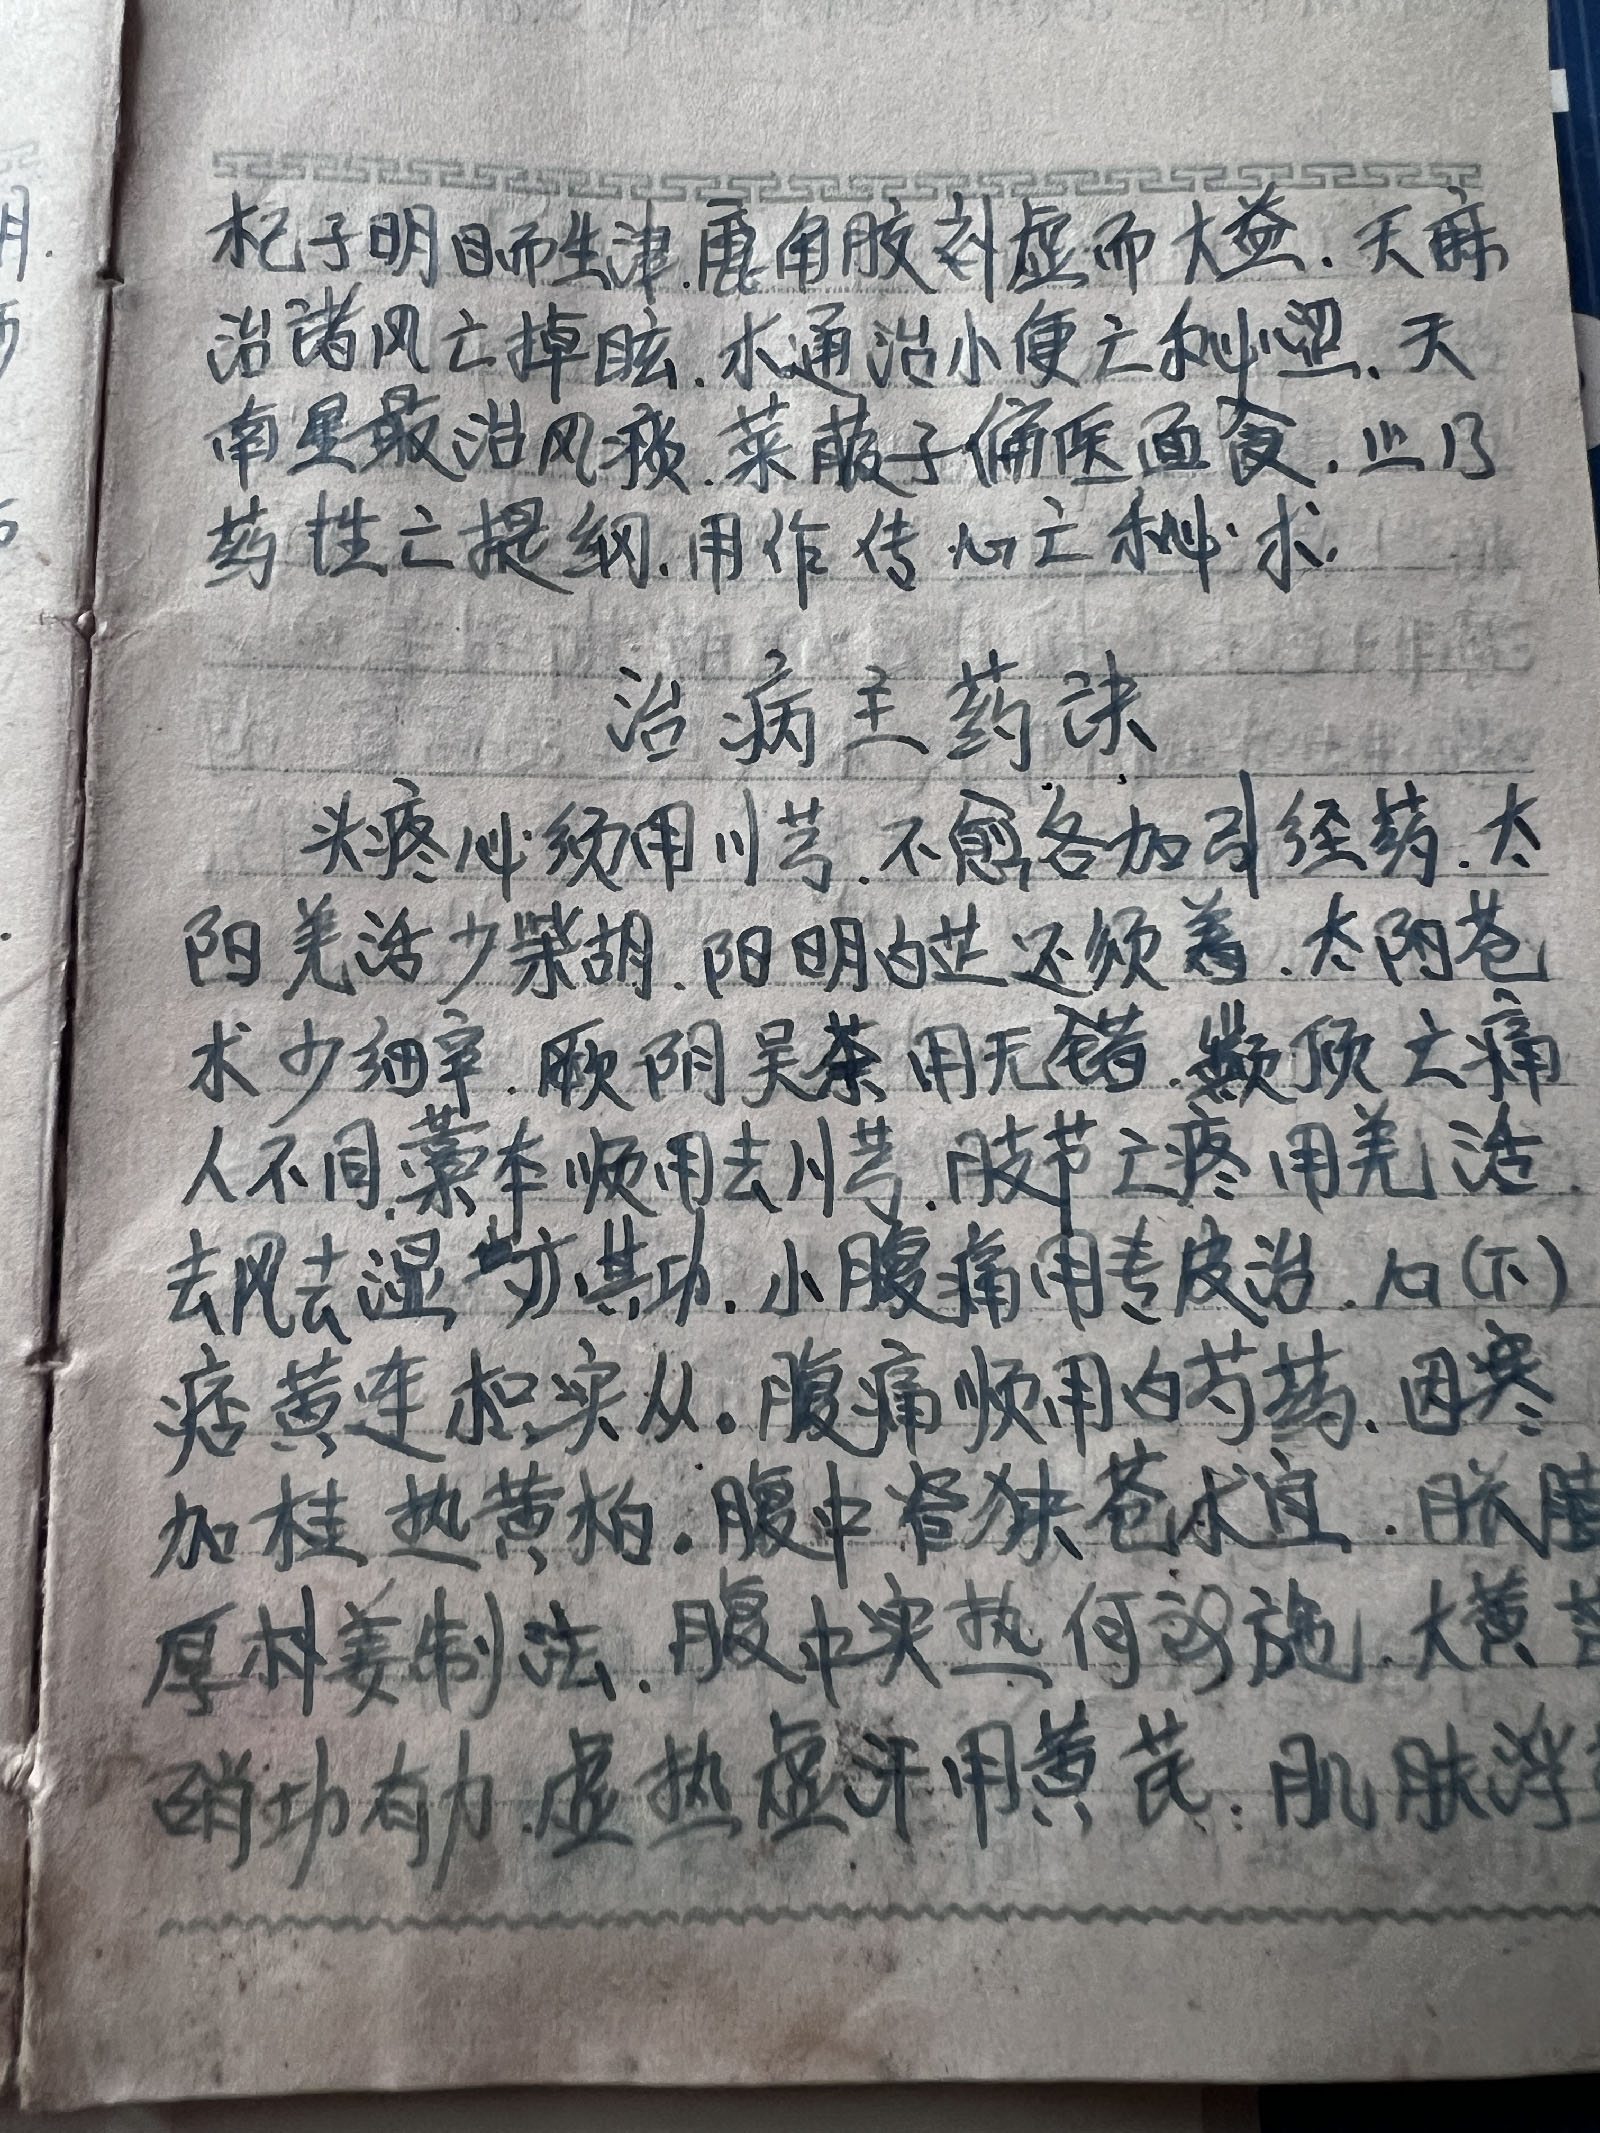 月.
杞子明目而生津.鹿角胶补虚而大益.天麻
治诸风亡掉眩.木通治小便亡秘涩.天
南星最治风痰.莱菔子偏医面食.此乃
药性亡提纲.用作传心亡秘求.
治病主药诀
头疼必须用川芎.不愈各加引经药.太
阳羌活少柴胡.阳明白芷还须着.太阴苍
术少细辛.厥阴吴茶用无错.巅顶亡痛
人不同.藁本须用去川芎.肢节亡疼用羌活
去风去湿亦其功.小腹痛用青皮治.心(下)
痞黄连枳实从。腹痛须用白芍药.因寒
加桂热黄柏.腹中窄狭苍术宜.胀膨
厚朴姜制法.腹中实热何所施.大黄芒
硝功有力.虚热虚汗用黄芪.肌肤浮